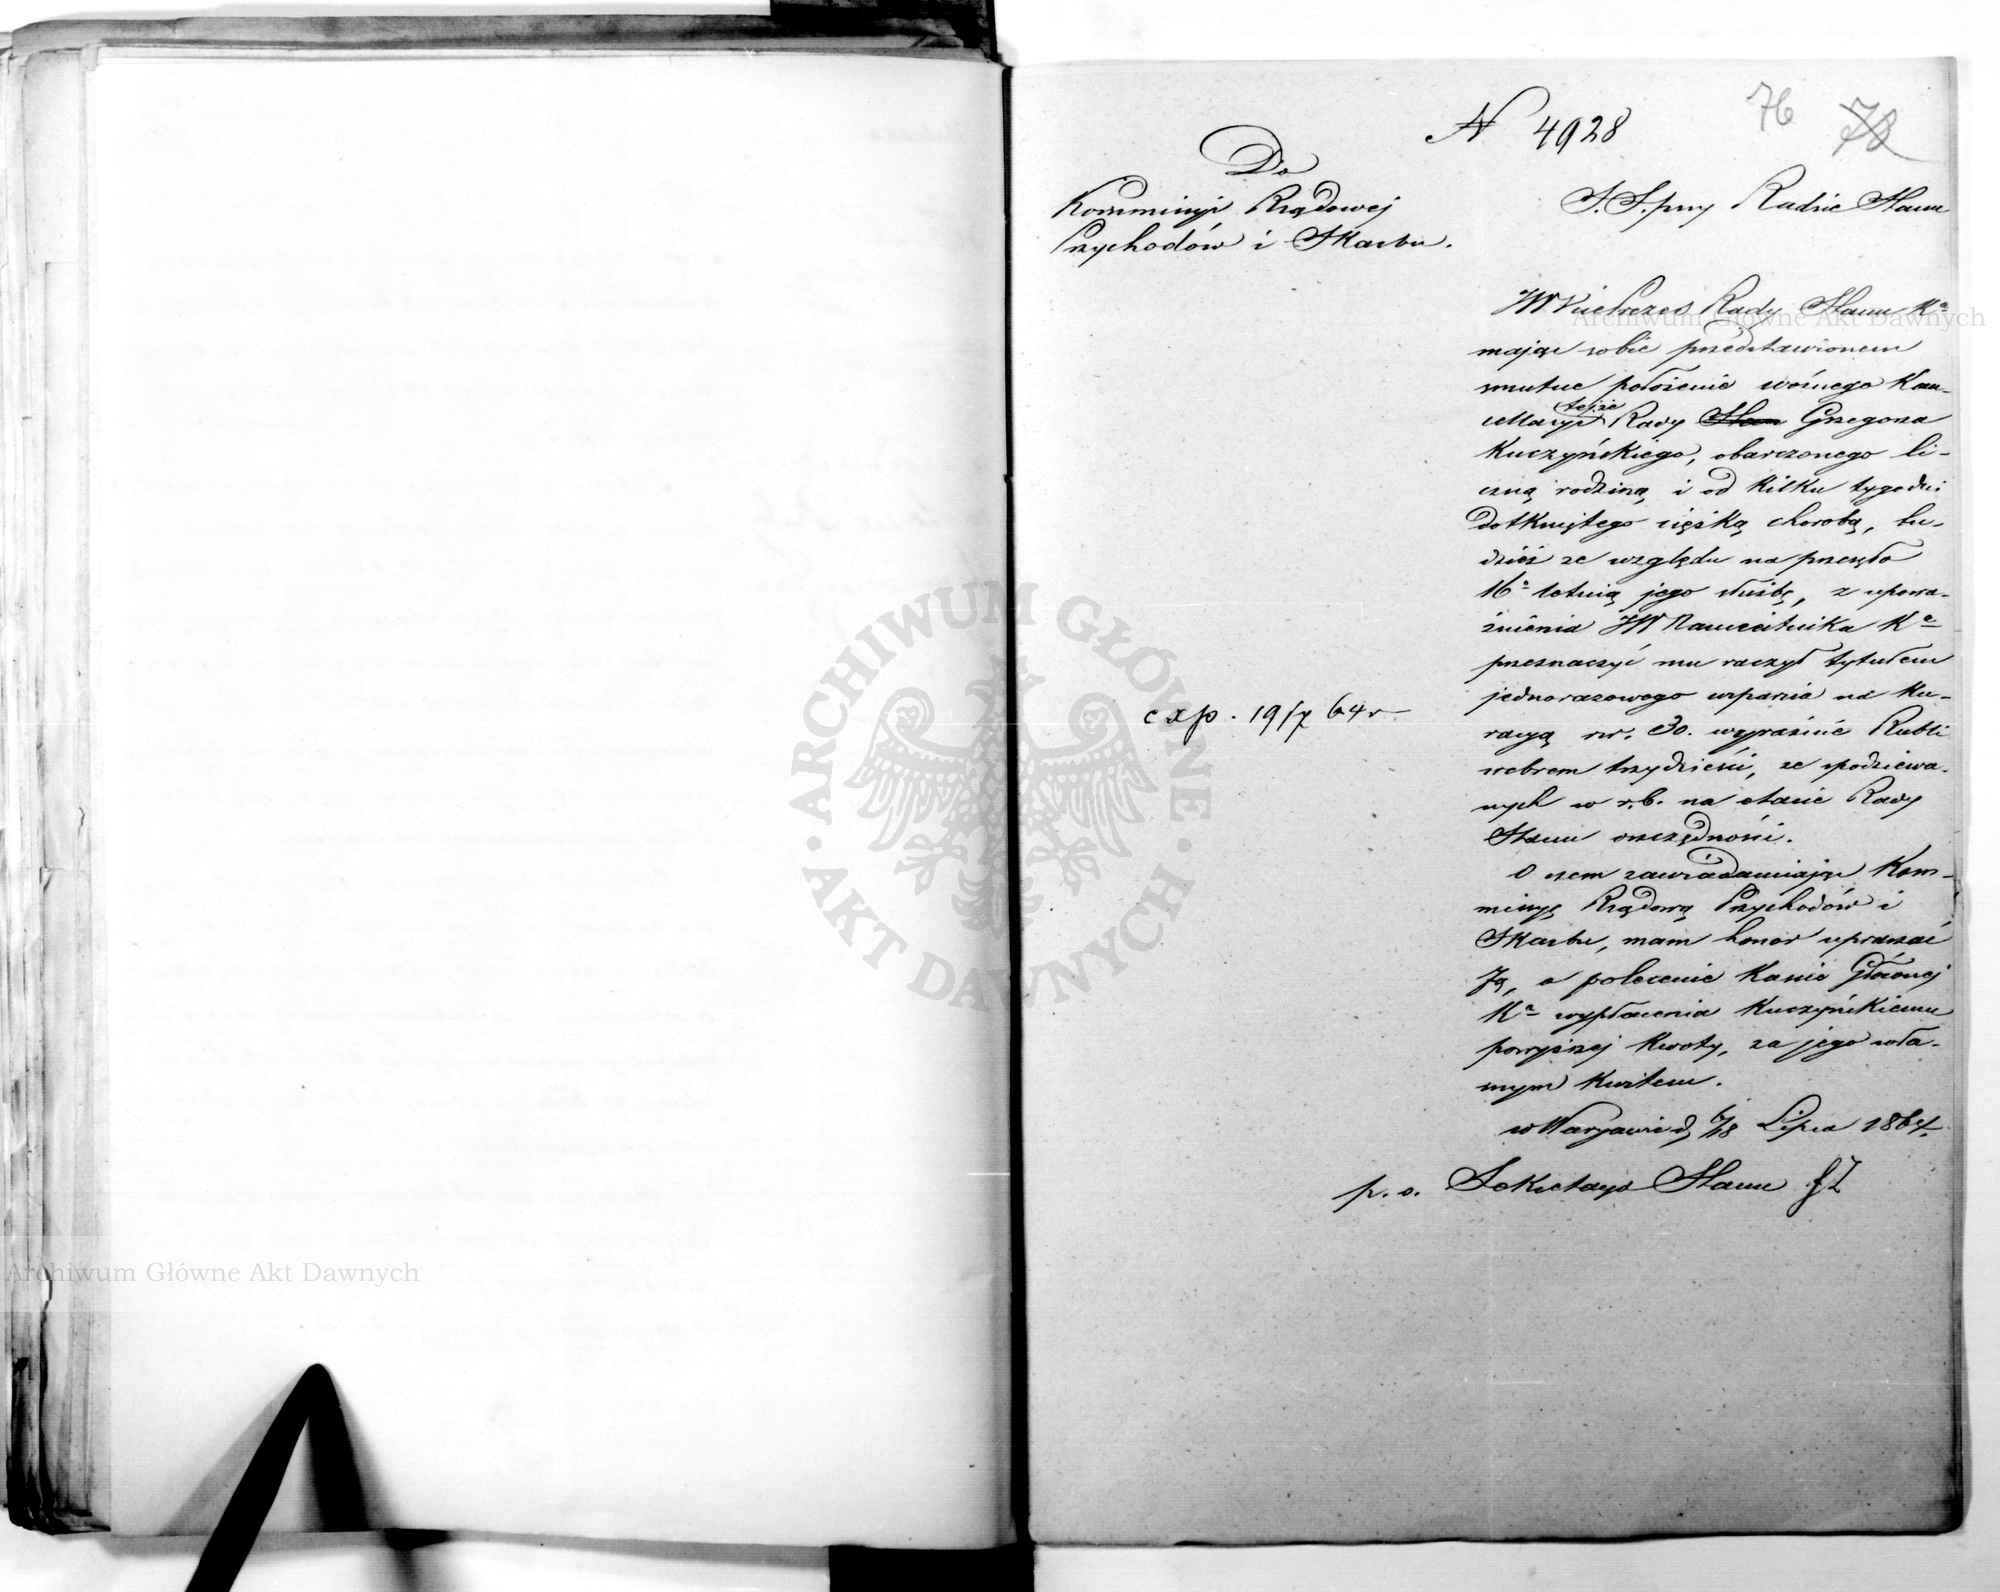 76 78
N 4928
Do
Kommissyi Rządowej
Przychodów i Skarbu.
S. S. przy Radzie Stanu
JW Viceprezes Rady Stanu Kª
mając sobie przedstawionem
smutne położenie woźnego Kan-
cellaryi tejże Rady Stan Grzegorza
Kuczyńskiego, obarczonego li-
czną rodziną i od kilku tygodni
dotkniętego cięźką chorobą, tu-
dzież ze względu na przeszło
16º letnią jego służbę, z upowa-
żnienia JW Namiestnika Kª
przeznaczyć mu raczył tytułem
jednorazowego wsparcia na ku-
racyą rsr. 30. wyraźnie Rubli
srebrem trzydzieści, ze spodziewa-
nych w r. b. na etacie Rady
Stanu oszczędności.
O czem zawiadamiając Kom-
missyę Rządową Przychodów i
Skarbu, mam honor upraszać
Ją, o polecenie Kassie Głównej
Kª wypłacenia Kuczyńskiemu
powyższej kwoty, za jego wła-
snym kwitem.
w Warszawie d. 6/18 Lipca 1864.
p. o. Sekretarza Stanu
exp. 19/7 64 r
Archiwum Główne Akt Dawnych
Archiwum Główne Akt Dawnych
ARCHIWUM GŁÓWNE
AKT DAWNYCH